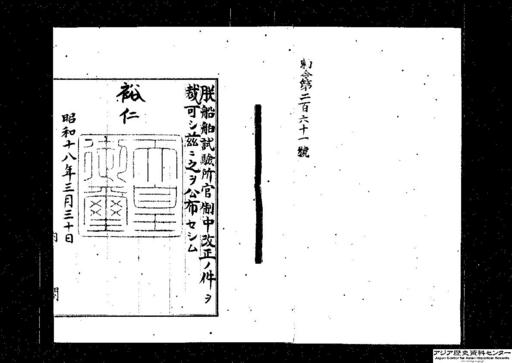 勅令第二百六十一號
朕船舶試驗所官制中改正ノ件ヲ
裁可シ茲ニ之ヲ公布セシム
裕仁
天皇
御璽
昭和十八年三月三十日
内閣
アジア歴史資料センター
Japan Center for Asian Historical Records